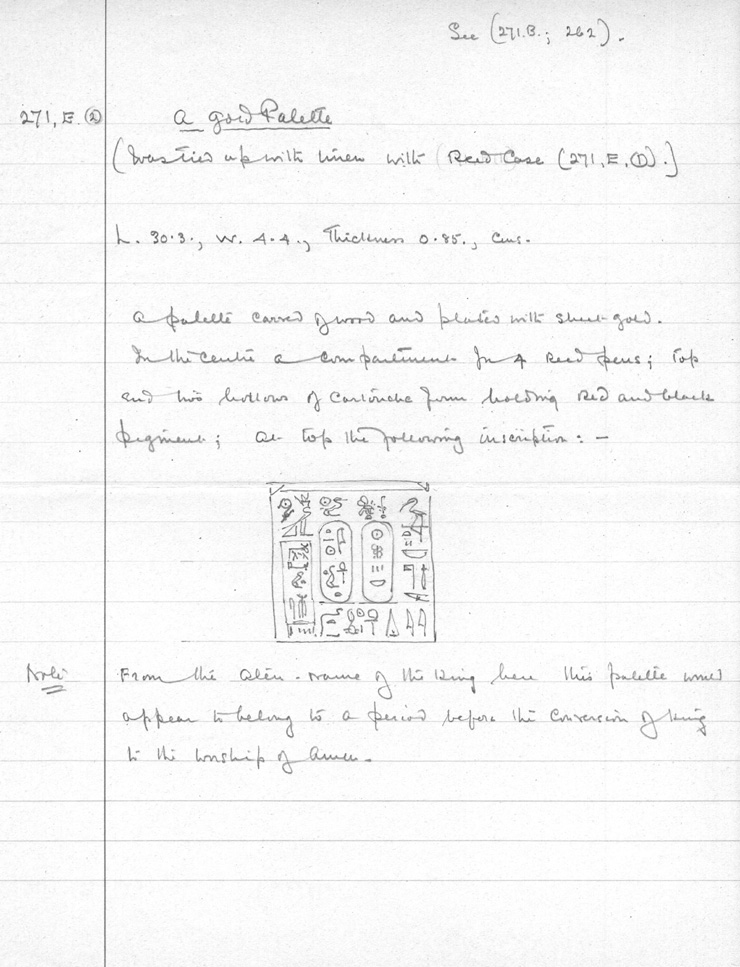 See (271.B.; 262).
271, E. ② A gold Palette
(Was tied up with linen with Reed Case (271, E, ①).)
L. 30.3., W. 4.4., Thickness 0.85., Cms.
A palette carved of wood and plated with sheet-gold.
In the centre a compartment for 4 reed pens; top
end two hollows of Cartouche form holding red and black
pigment; at top the following inscription: —
Note From the Aten-name of the King here this palette would
appear to belong to a period before the conversion of king
to the worship of Amen.